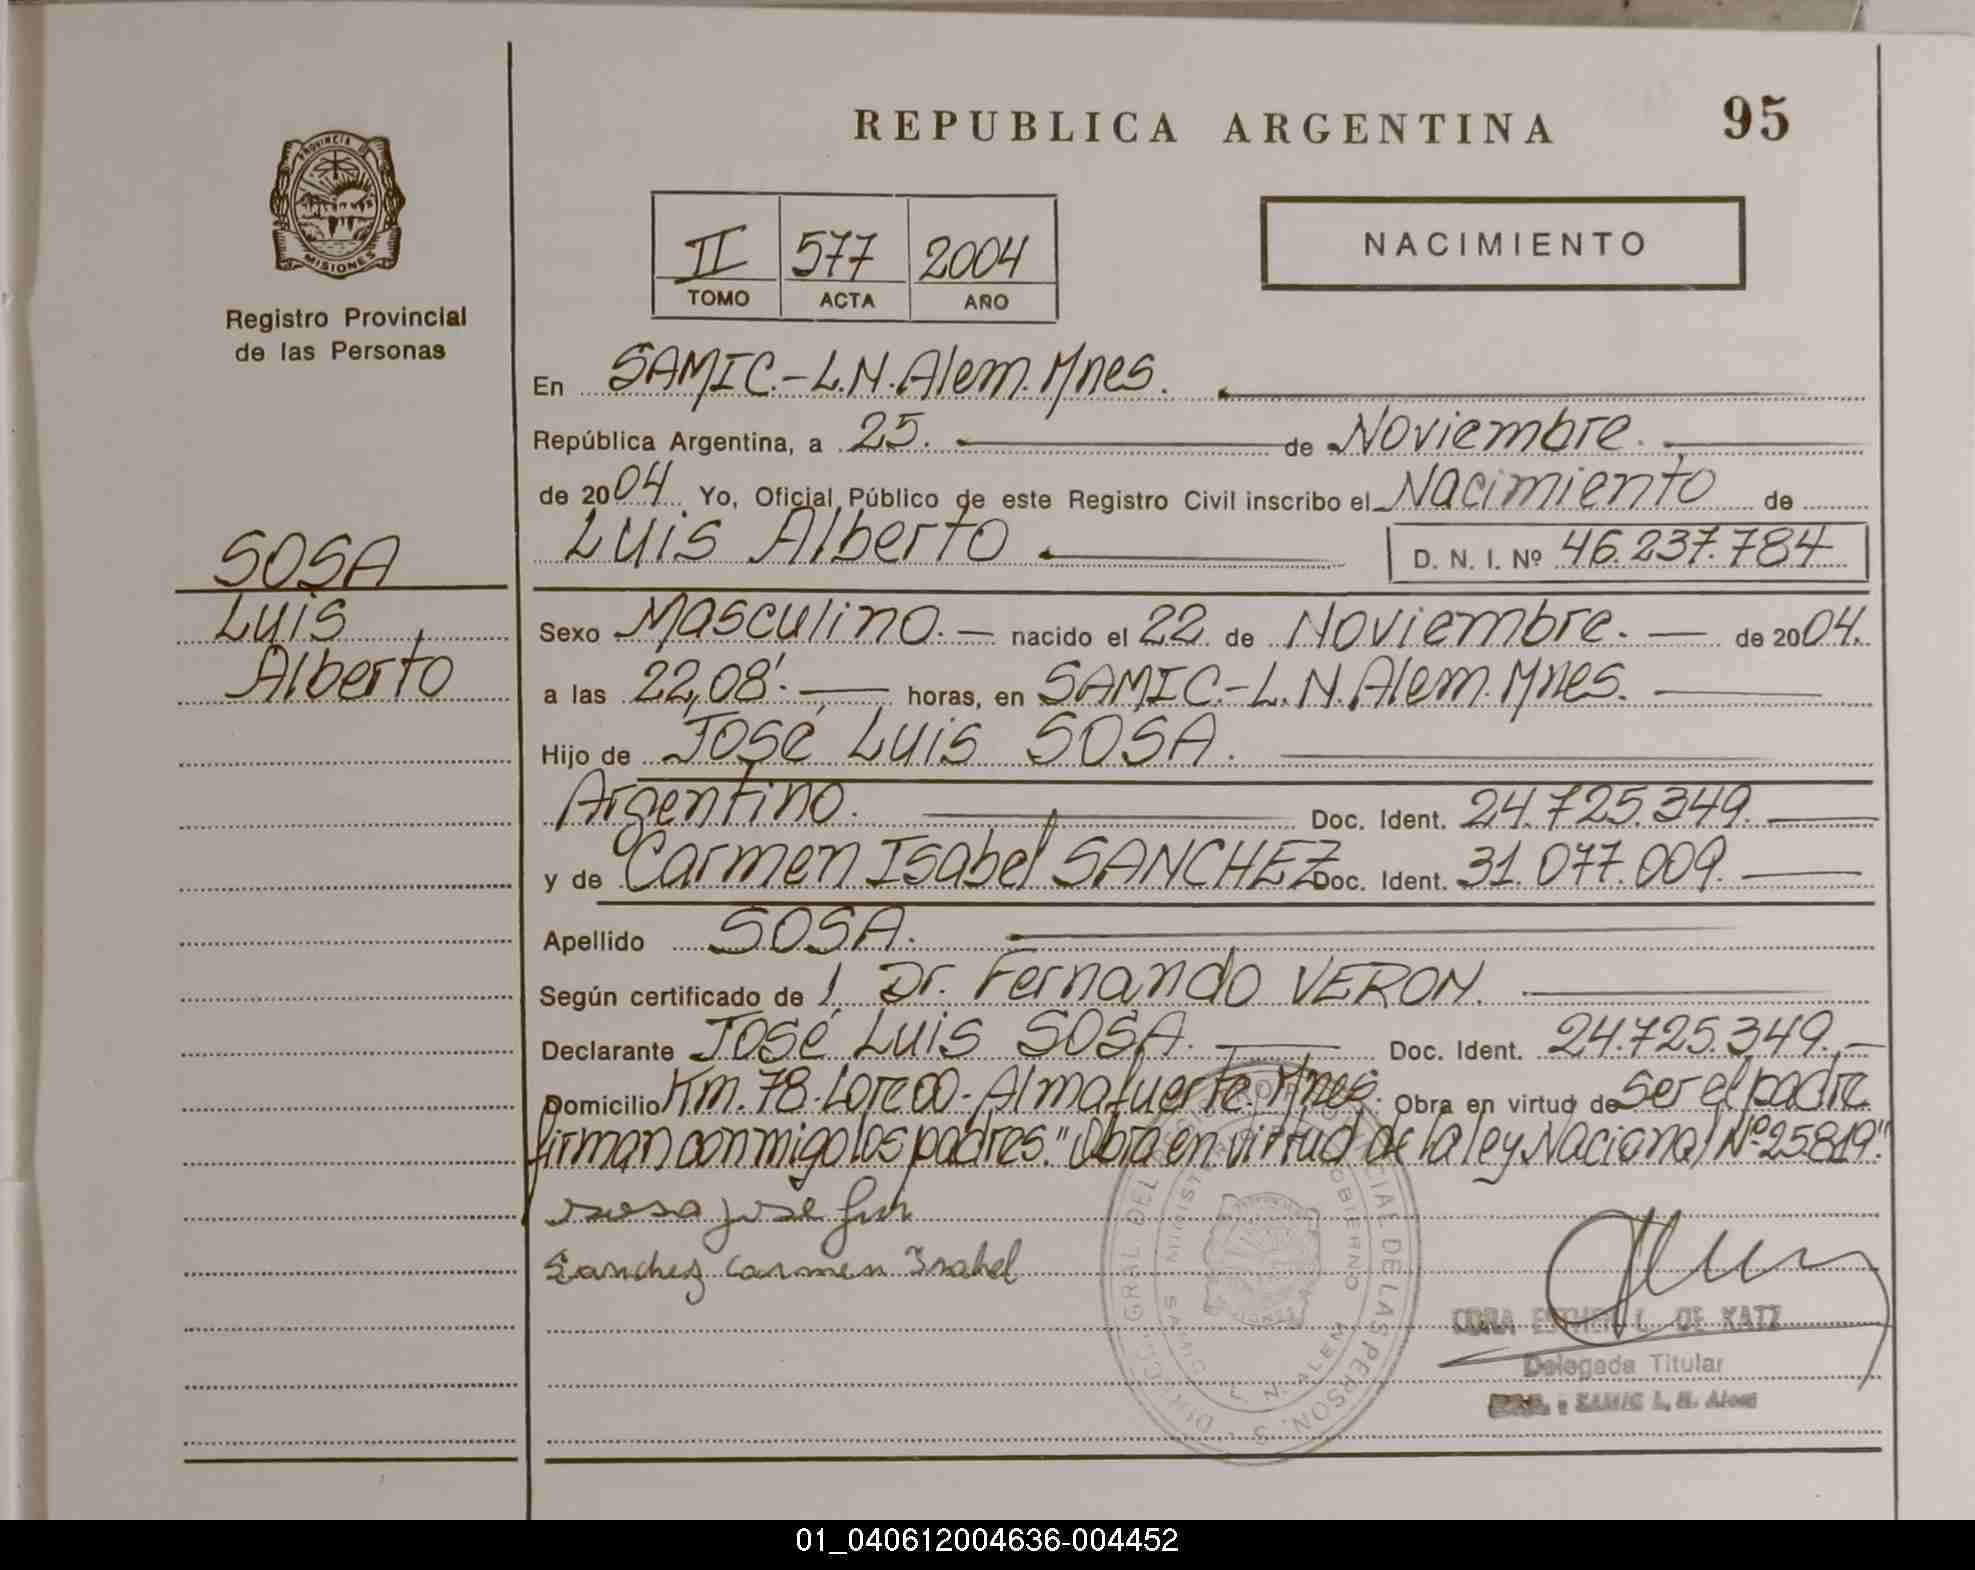 REPUBLICA ARGENTINA
95
PROVINCIA DE
MISIONES
Registro Provincial
de las Personas
II 577 2004
TOMO ACTA AÑO
NACIMIENTO
En SAMIC.-L.N.Alem.Mnes.
República Argentina, a 25. de Noviembre.
de 2004 Yo, Oficial Público de este Registro Civil inscribo el Nacimiento de
Luis Alberto
D. N. I. Nº 46.237.784
SOSA
Luis
Alberto
Sexo Masculino.- nacido el 22 de Noviembre.- de 2004.
a las 22,08'.- horas, en SAMIC.-L.N.Alem.Mnes.
Hijo de José Luis SOSA.
Argentino. Doc. Ident. 24.725.349.
y de Carmen Isabel SANCHEZ Doc. Ident. 31.077.009.
Apellido SOSA.
Según certificado de / Dr. Fernando VERON.
Declarante José Luis SOSA. Doc. Ident. 24.725.349.-
Domicilio Km.78-Loteo-Almafuerte.Mnes. Obra en virtud de ser el padre
firman conmigo los padres."Obra en virtud de la ley Nacional Nº25819".
sosa jose
Sanchez Carmen Isabel
CORA ESTHER L. DE KATZ
Delegada Titular
SAMIC L. N. Alem
L. N. ALEM
01_040612004636-004452